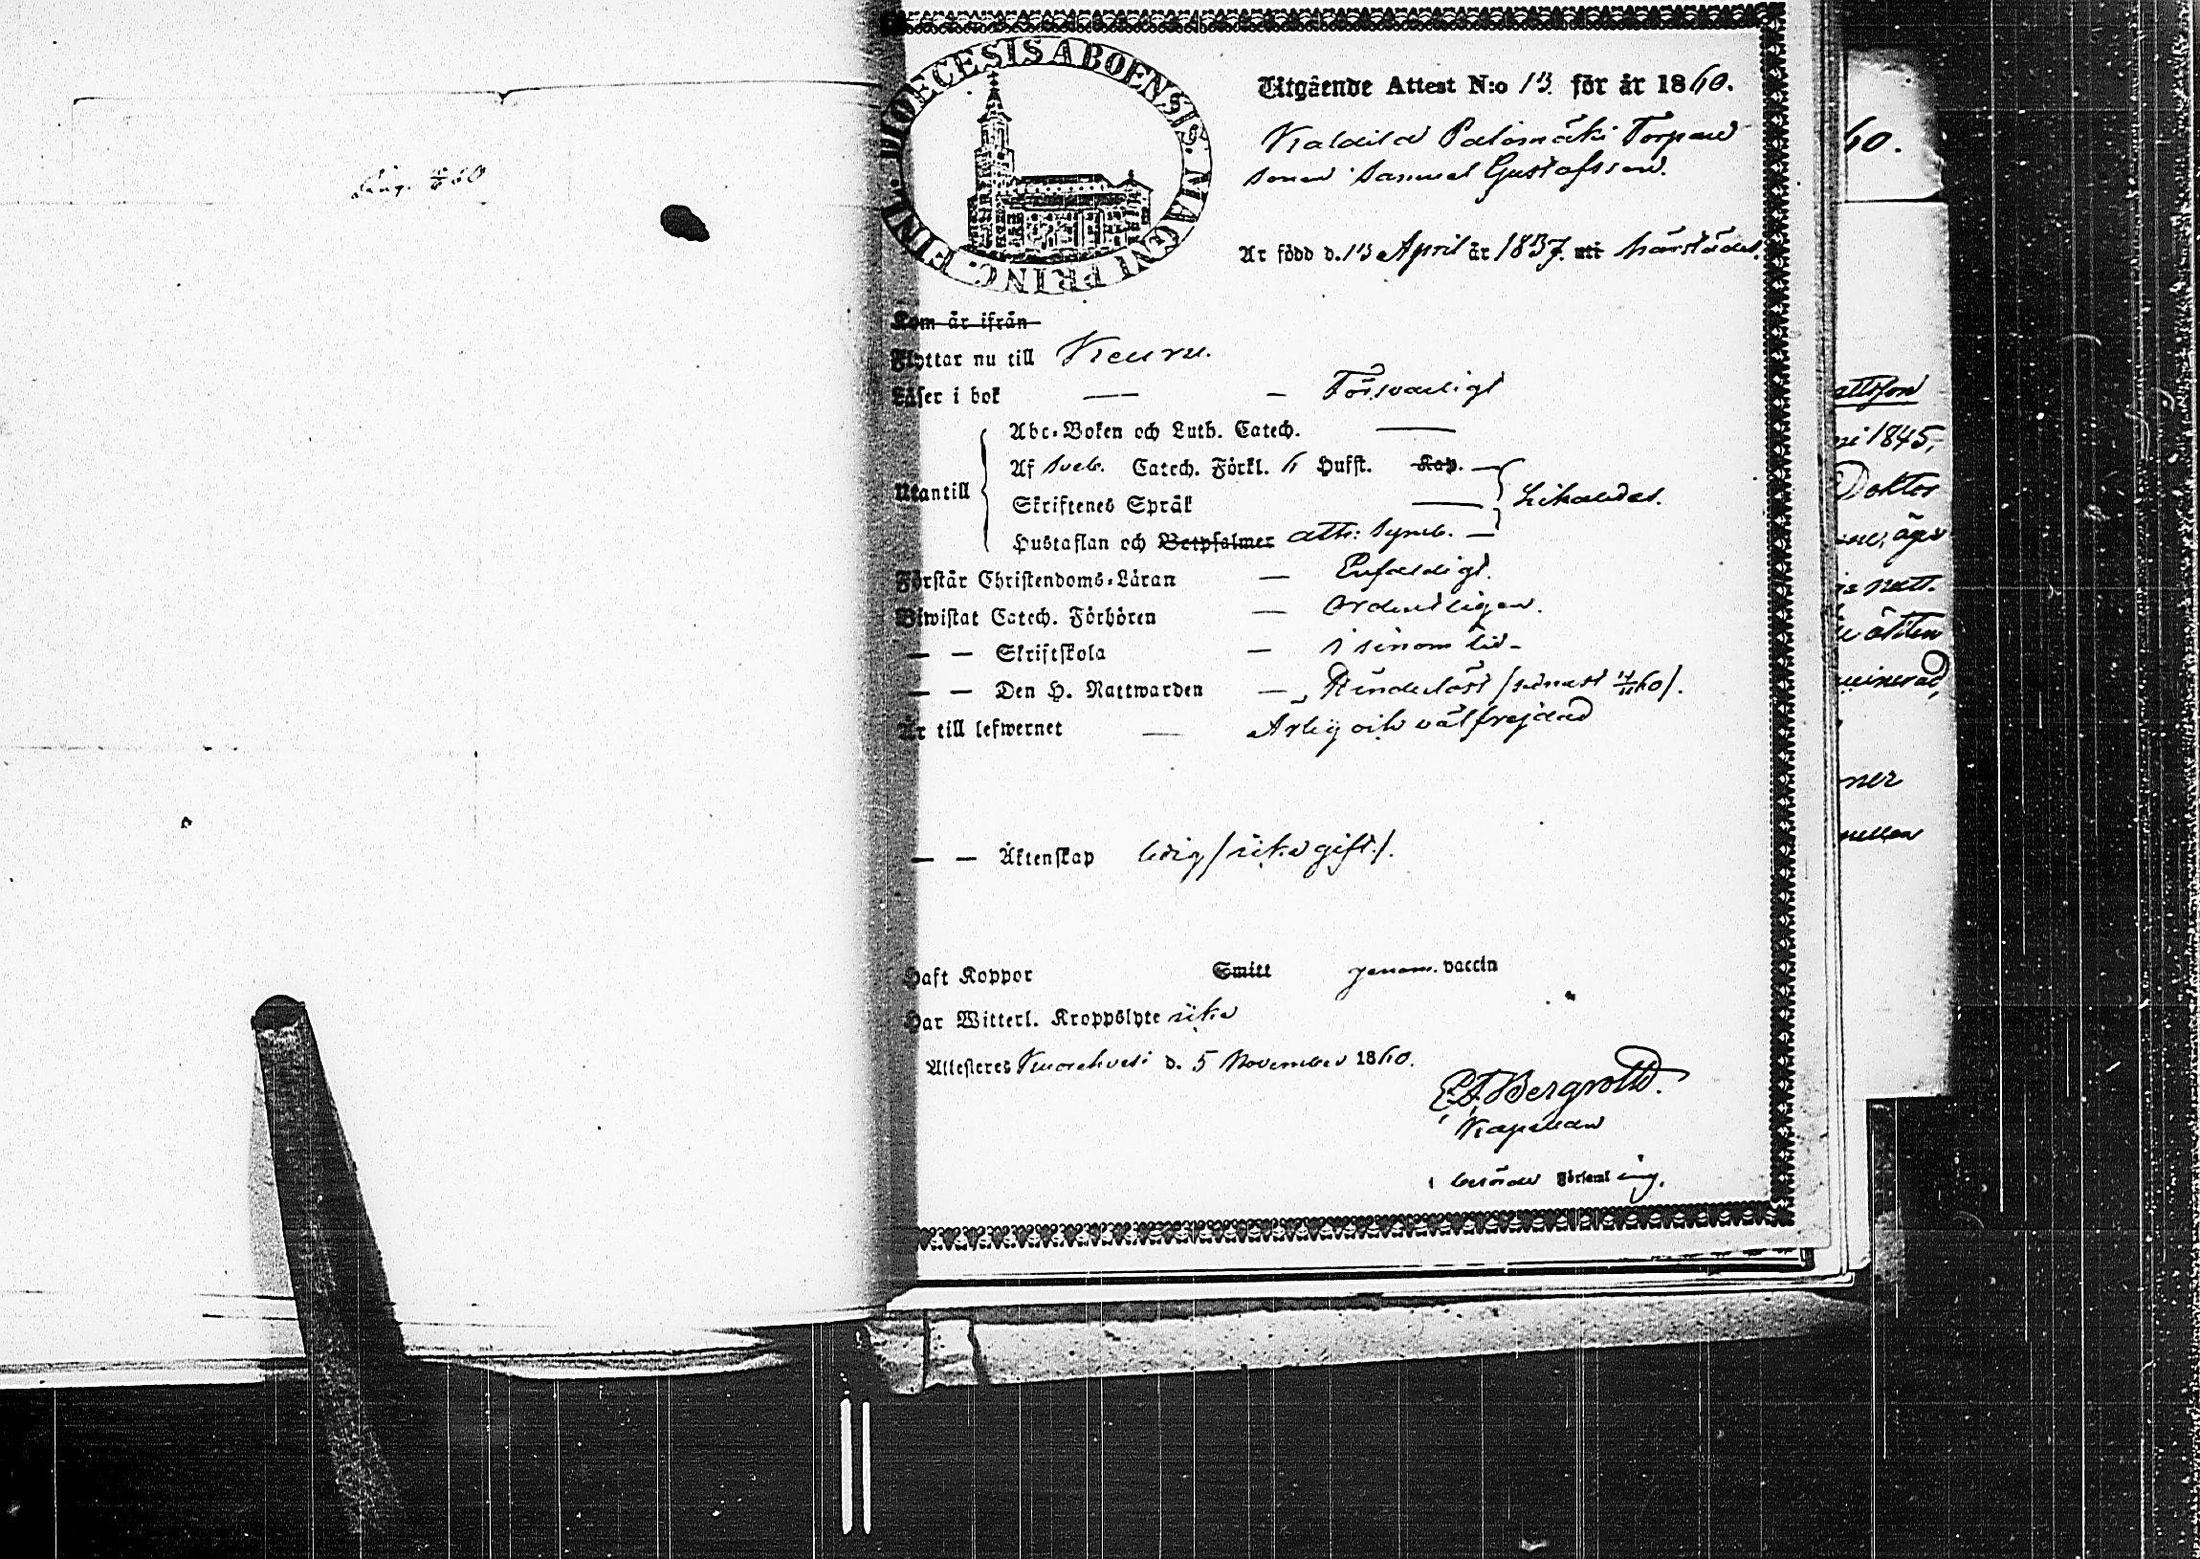 DIOECESIS ABOENSIS. MAGNI PRINC. FINL.
Utgående Attest N:o 13 för år 1860.
Kaldila Palomäki Torpare
sonen Samuel Gustafsson.
Är född d. 13 April år 1837. uti härstädes.
Kom år ifrån
Flyttar nu till Keuru.
Läser i bok — — Försvarligt
Abc-Boken och Luth. Catech. —
Utantill
Af Sveb. Catech. Förkl. 6 Hufst. Kap. —
Skriftenes Språk —
Likaledes.
Hustaflan och Betpsalmer ath: Symb. —
Förstår Christendoms-Läran — Enfaldigt.
Biwistat Catech. Förhören — Ordentligen.
— — Skriftskola — i sinom tid -
— — Den H. Nattwarden — Hinderlöst /senast 60/.
Är till lefwernet — Ärlig och välfrejdad
— — Äktenskap ledig /icke gift/.
Haft Koppor Smitt genom. vaccin
Har Witterl. Kroppslyte icke
Attesteres Kuorehvesi d. 5 November 1860.
E. F. Bergroth.
Kapellan
i berörde Församl ing.
60.
attsson
ni 1845,
Doktor
natt.
ner